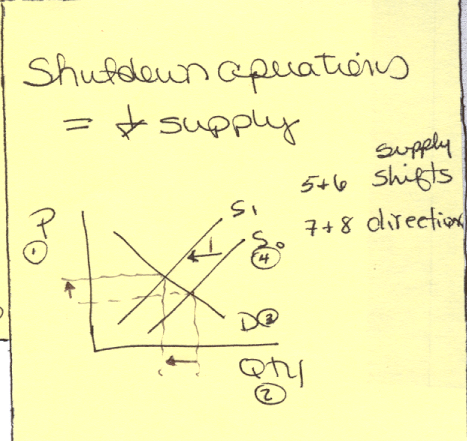 Shutdown operations
= ↓ supply
supply
5+6 shifts
7+8 direction
P
①
S₁
S₀
④
D③
Qty
②